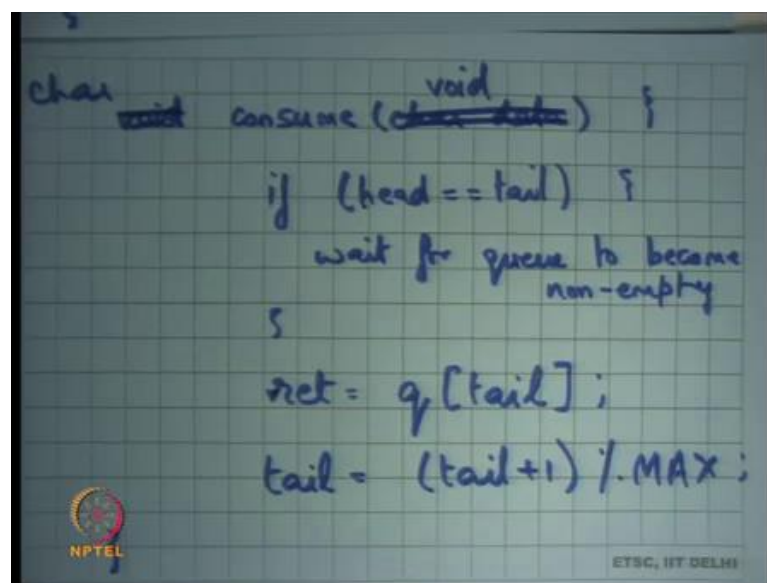 }
char void
consume (void) {
if (head == tail) {
wait for queue to become
non-empty
}
ret = q[tail];
tail = (tail+1) % MAX;
}
NPTEL
ETSC, IIT DELHI